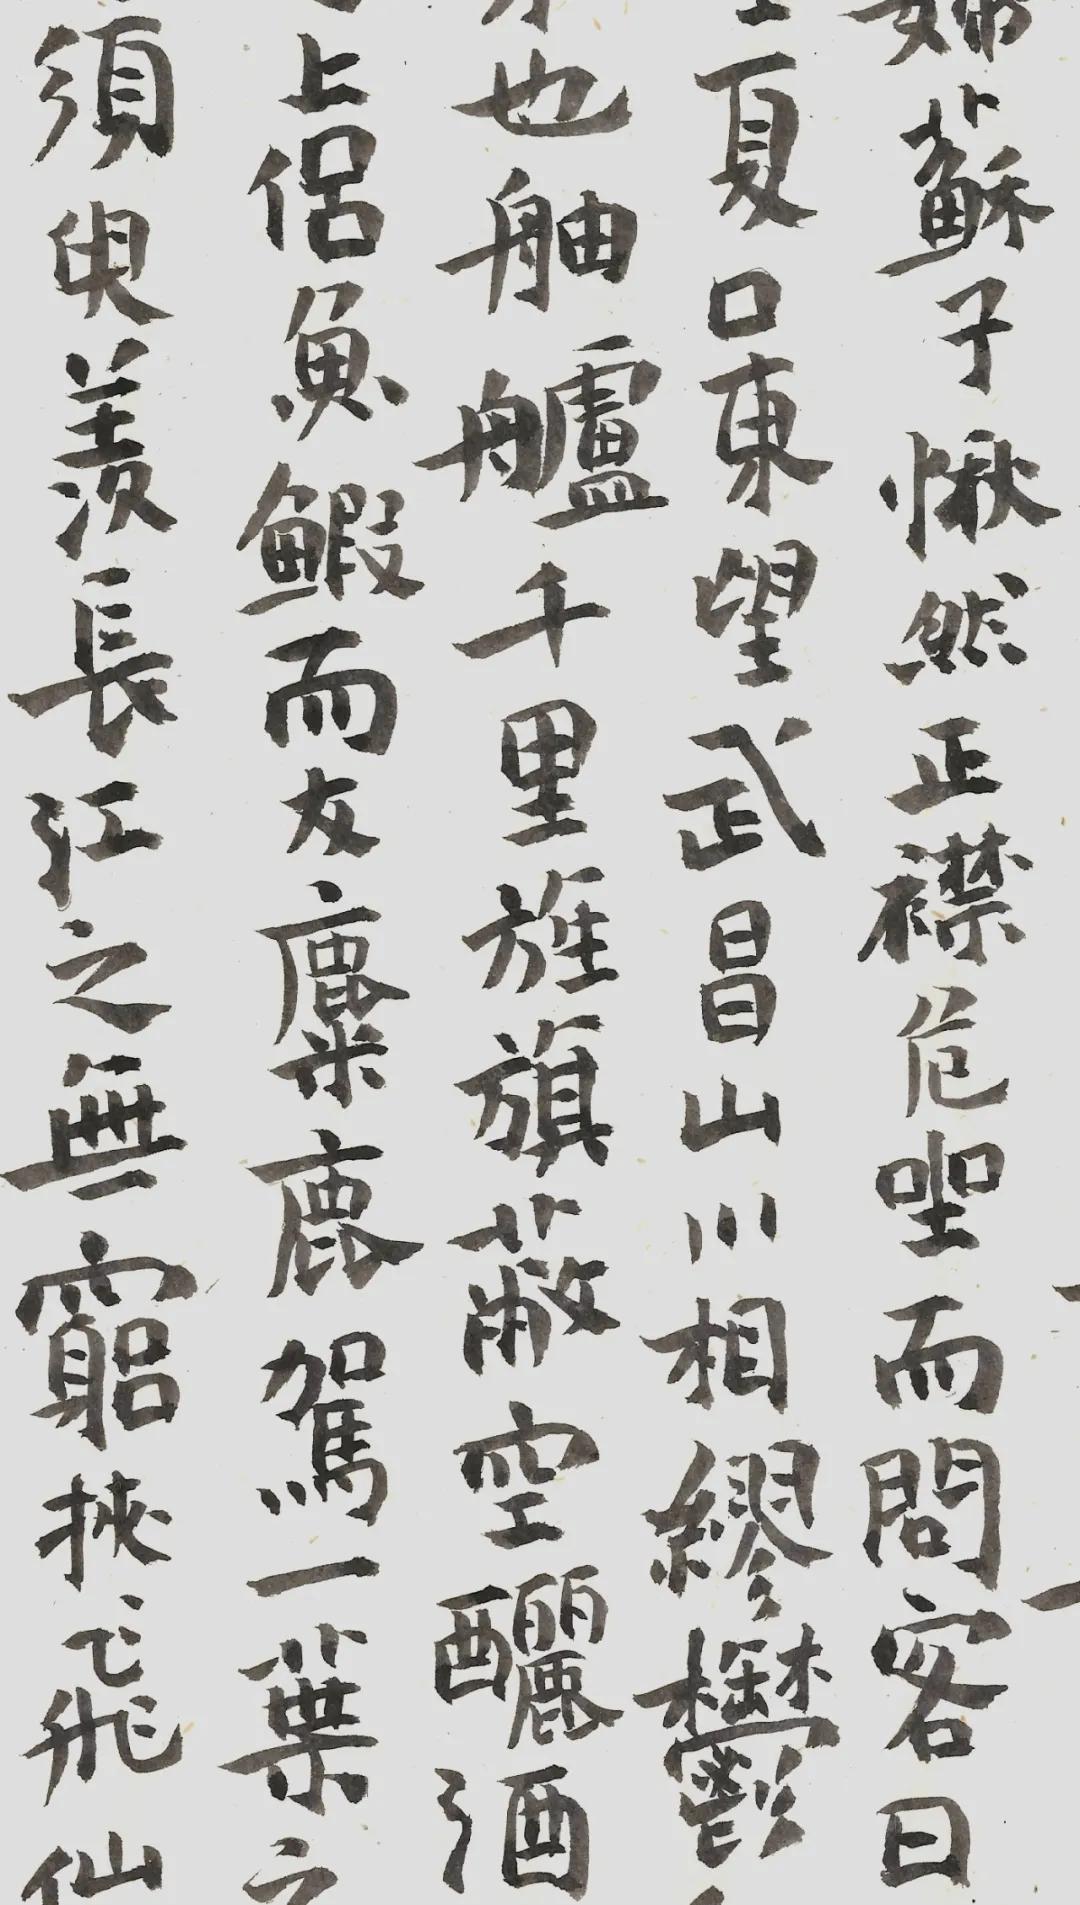 婦蘇子愀然正襟危坐而問客曰
夏口東望武昌山川相繆鬱
也舳艫千里旌旗蔽空釃酒
上侶魚鰕而友麋鹿駕一葉之
須臾羨長江之無窮挾飛仙